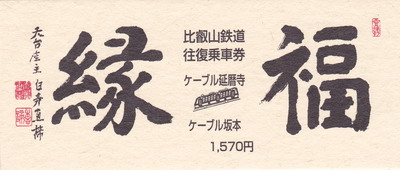 福
比叡山鉄道
往復乗車券
ケーブル延暦寺
ケーブル坂本
1,570円
縁
天台座主